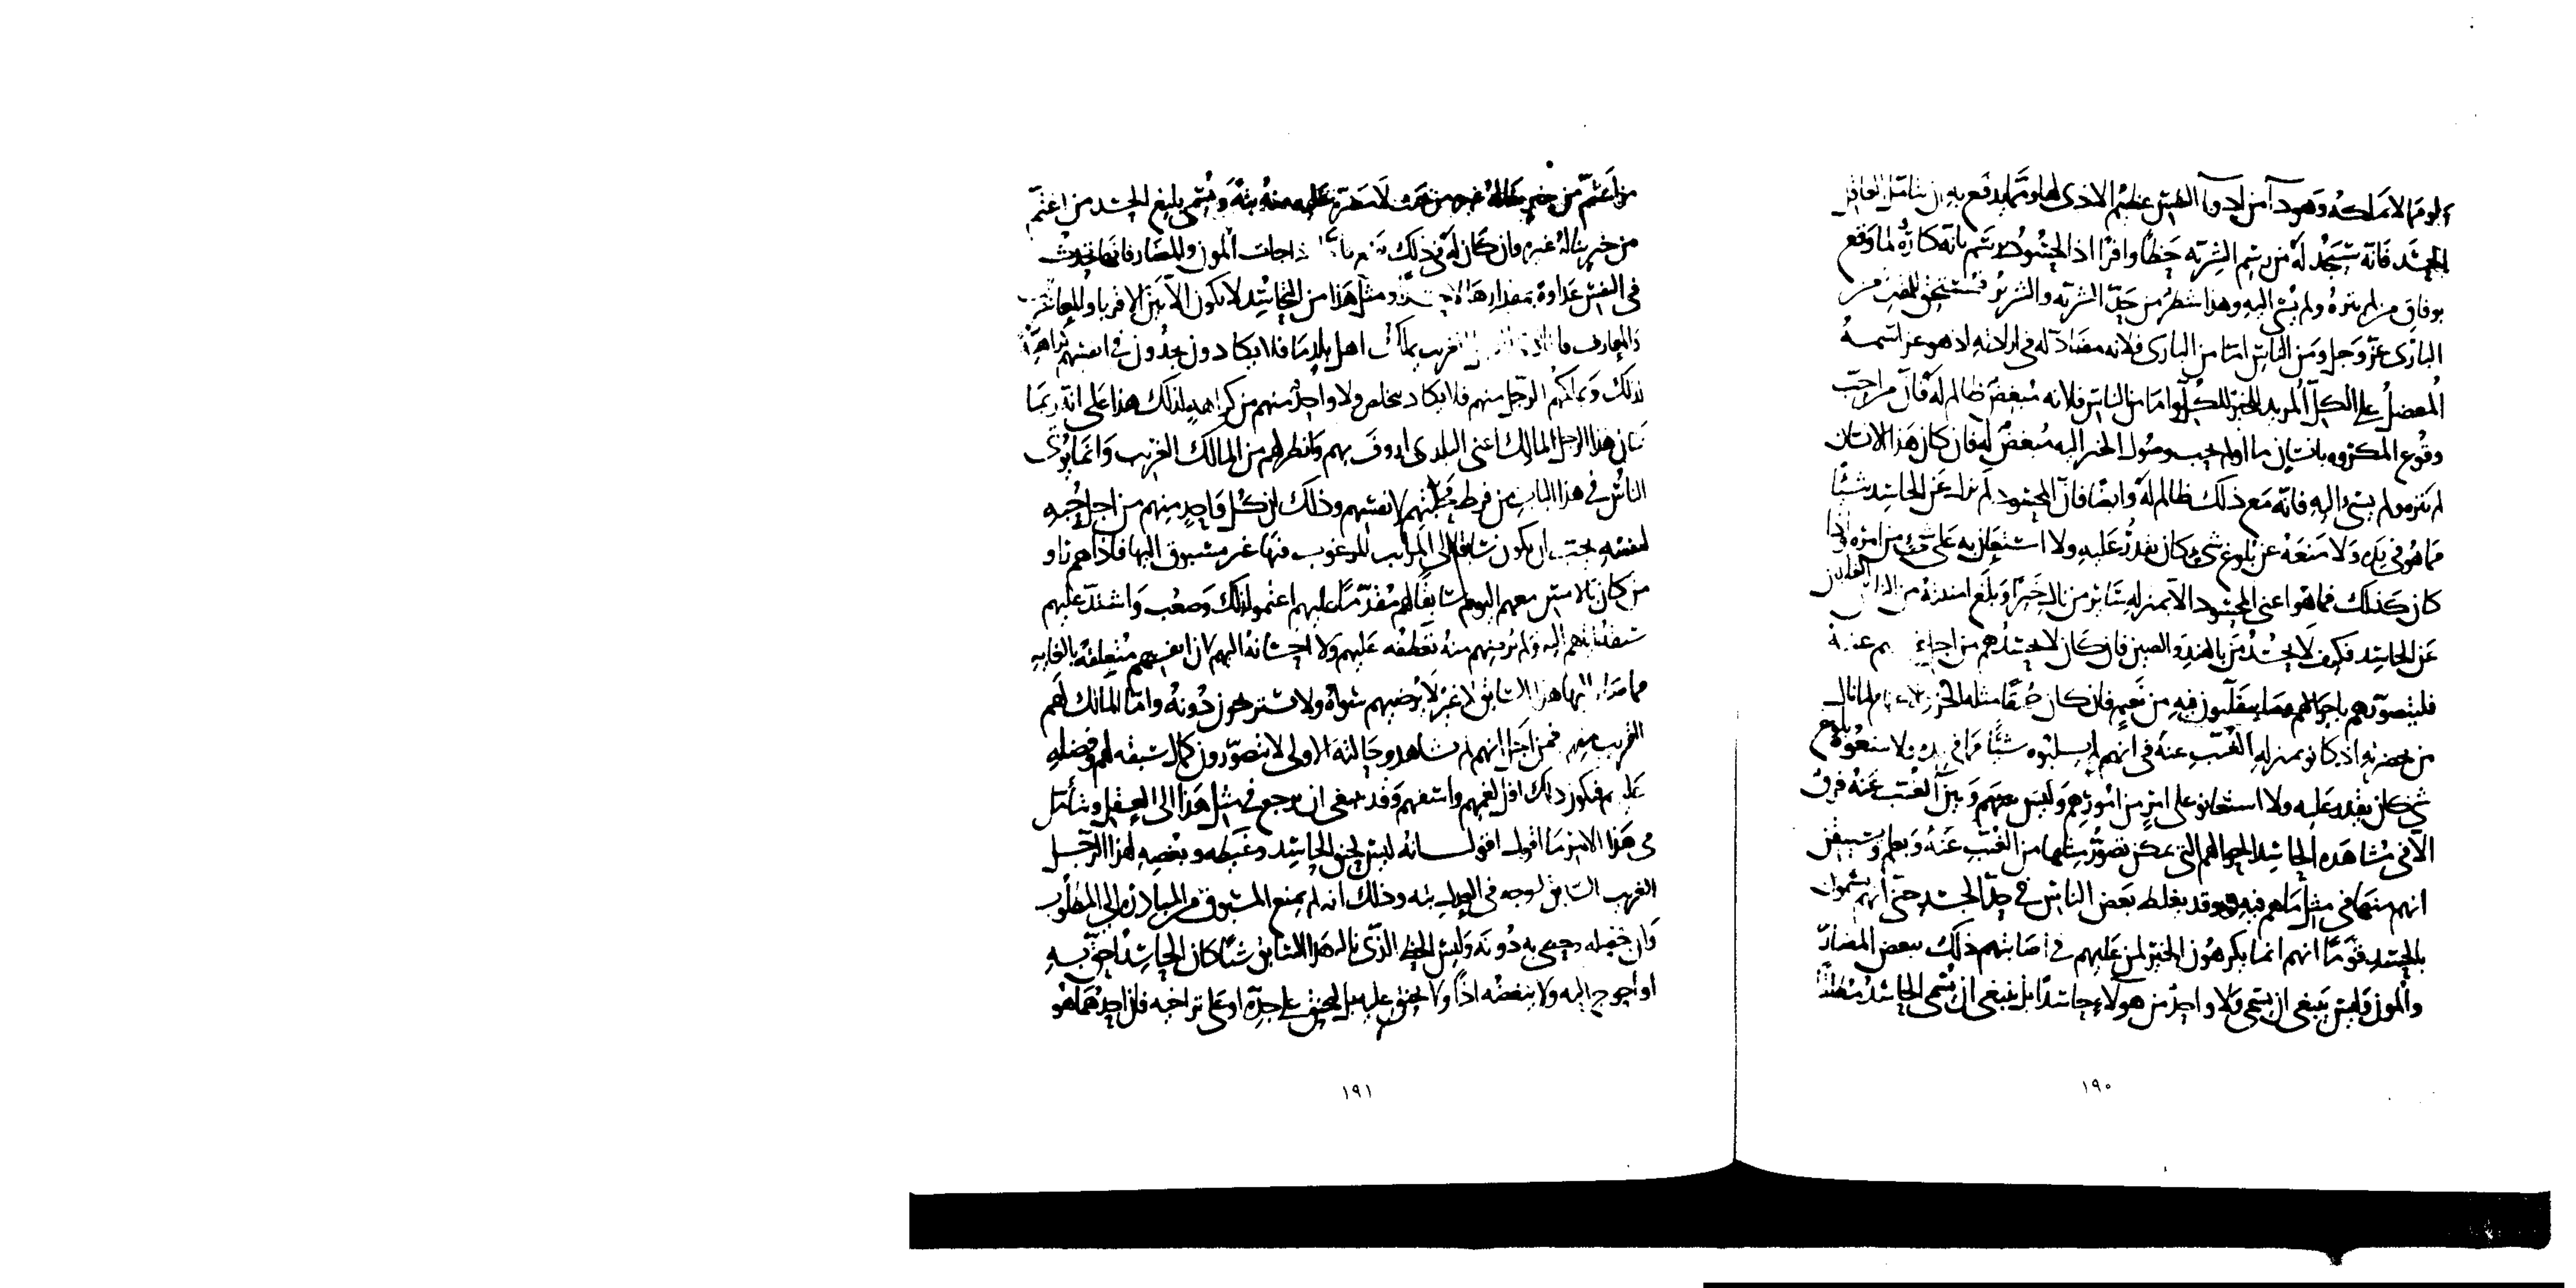 لو مما لا يملكه وهو داء من ادواء النفس عظيم الاذى لها ومما يدفع به ان يتأمل العاقل
الحسد فانه سيجد له من رسم الشرير حظا وافرا اذ الحسود رسم بانه كاره لما وقع
بوفاق من لم يتره ولم يسئ اليه وهذا شطر من حد الشرير والشرير مستحق للمقت من
البارئ عز وجل ومن الناس اما من البارى فلانه مضاد له في ارادته اذ هو عز اسمه
المفضل على الكل المريد الخير للكل واما من الناس فلانه مبغض ظالم له فان من احب
وقوع المكروه بانسان ما او لم يحب وصول الخير اليه مبغض له فان كان هذا الانسان
لم يتره ولم يسئ اليه فانه مع ذلك ظالم له وايضا فان المحسود لم يزل عن الحاسد شيئا
مما هو في يده ولا منعه عن بلوغ شئ كان يقدر عليه ولا استعان به على شئ من امره فاذا
كان كذلك فما هو اعنى المحسود الا بمنزلة سائر من نال خيرا وبلغ امنيته من الناس الغائبين
عن الحاسد فكيف لا يحسد من بالهند والصين فان كان لا يحسدهم من اجل غيبتهم عنه
فليتصورهم باحوالهم وما يتقلبون فيه من نعيم فان كان حمقا مثله الحزن والاغتمام لما نال
من بحضرته اذ كانوا بمنزلة الغيب عنه في انهم لم يسلبوه شيئا مما في يده ولا منعوه بلوغ
شئ كان يقدر عليه ولا استعانوا على امر من امورهم وليس بينهم وبين الغيب عنه فرق
الا في مشاهدة الحاسد احوالهم التي يمكن تصور مثلها من الغيب عنه ويعلم ويستيقن
انهم منها في مثل ما هم فيه وقد يغلط بعض الناس في حد الحسد حتى انهم يسمون
بالحسد قوما انهم انما يكرهون الخير لمن عليهم في اصابتهم ذلك بعض المضار
والمون وليس ينبغى ان يسمى ولا واحد من هولاء حاسدا بل ينبغى ان يسمى الحاسد مطلقا
من اغتم من خير يناله غيره من حيث لا مضرة عليه منه بتة ويسمى بليغ الحسد من اغتم
من خير يناله غيره وان كان له في ذلك نفع ما ‏فاما اذا جات المون والمضار فانها تحدث
في النفس عداوة بمقدارها لا حسدا ومثل هذا من التحاسد لا يكون الا بين الاقرباء والمعاشرين
والمعارف فانا نرى الرجل الغريب يملك اهل بلد ما فلا يكادون يجدون في انفسهم كراهة
لذلك ويملكهم الرجل منهم فلا يكاد يتخلص ولا واحد منهم من كراهيه لذلك هذا على انه ربما
كان هذا الرجل المالك اعنى البلدى اروف بهم وانظر لهم من المالك الغريب وانما يوتى
الناس في هذا الباب من فرط محبتهم لانفسهم وذلك ان كل واحد منهم من اجل حبه
لنفسه يحب ان يكون سابقا الى المراتب المرغوب فيها غير مسبوق اليها فاذا هم راوا
من كان بالامس معهم اليوم سابقا لهم مقدما عليهم اغتموا لذلك وصعب واشتد عليهم
سبقه اياهم اليه ولم يرضهم منه تعطفه عليهم ولا احسانه اليهم لان انفسهم متعلقة بالغاية
مما صار اليها هذا السابق لا غير لا يرضيهم سواه ولا يستريحون دونه واما المالك لهم
الغريب منهم فمن اجل انهم لم يشاهدوا حالته الاولى لا يتصورون كمال سبقه لهم وفضله
عليهم فيكون ذلك اقل لغمهم واسفهم وقد ينبغى ان يرجع في مثل هذا الى العقل ويتأمل
في هذا الامر ما اقول اقول انه ليس لحنق الحاسد وغيظه وبغضه لهذا الرجل
الغريب السابق له وجه في العدل بتة وذلك انه لم يمنع المسبوق من المبادرة الى المطلوب
وان حصله وحظى به دونه وليس الحظ الذى ناله هذا السابق شيئا كان الحاسد احق به
او احوج اليه ولا يبغضه اذا ولا يحنق عليه بل ليحنق على جده او على تراخيه فان احدهما هو
١٩١
١٩٠